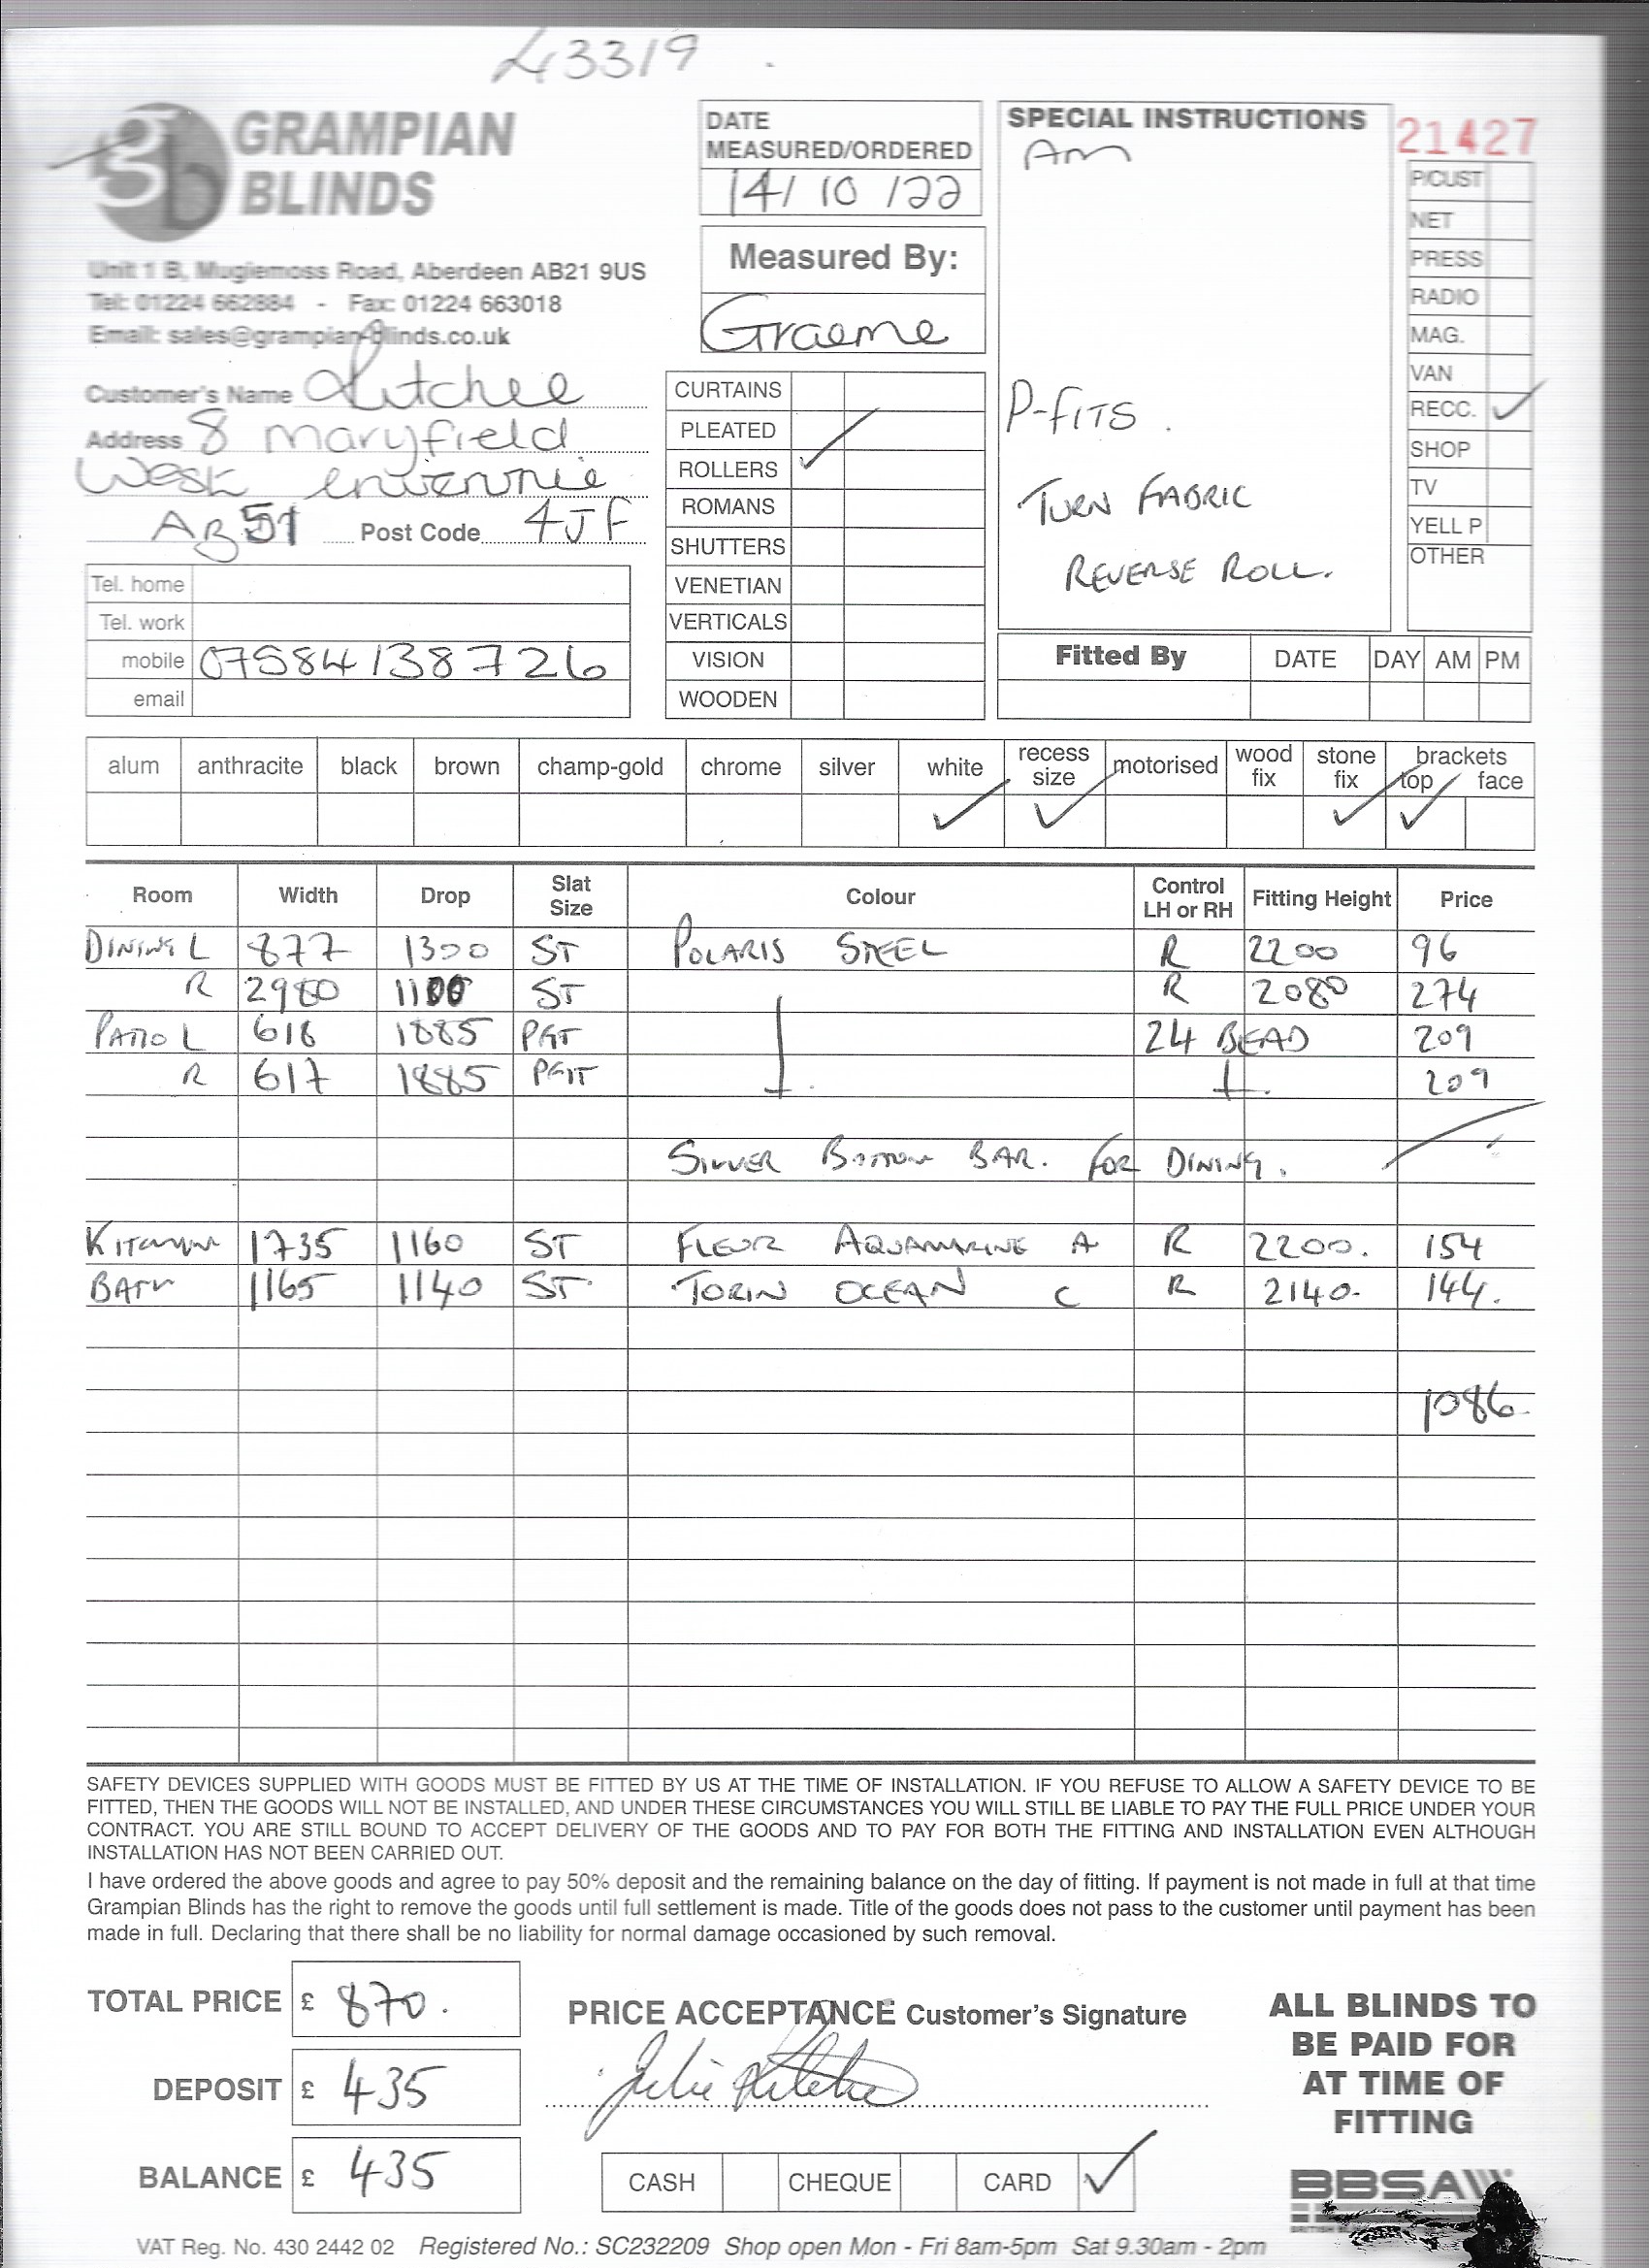 43319
GRAMPIAN
BLINDS
Unit 1 B, Mugiemoss Road, Aberdeen AB21 9US
Tel: 01224 662884 - Fax: 01224 663018
Email: sales@grampian-blinds.co.uk
Customer's Name Ritchie
Address 8 Maryfield
West
AB51 Post Code 4JF
Tel. home
Tel. work
mobile 07584138726
email
DATE
MEASURED/ORDERED
14/10/22
Measured By:
Graeme
CURTAINS
PLEATED
ROLLERS ✓
ROMANS
SHUTTERS
VENETIAN
VERTICALS
VISION
WOODEN
SPECIAL INSTRUCTIONS
Am
P-FITS.
TURN FABRIC
REVERSE ROLL.
21427
P/CUST
NET
PRESS
RADIO
MAG.
VAN
RECC. ✓
SHOP
TV
YELL P
OTHER
Fitted By DATE DAY AM PM
alum anthracite black brown champ-gold chrome silver white ✓ recess size ✓ motorised wood fix stone fix ✓ brackets top ✓ face
Room Width Drop Slat Size Colour Control LH or RH Fitting Height Price
DINING L 877 1300 ST POLARIS STEEL R 2200 96
R 2980 1100 ST R 2080 274
PATIO L 616 1885 PFIT 24 BEAD 209
R 617 1885 PFIT 209
SILVER BOTTOM BAR. FOR DINING.
KITCHEN 1735 1160 ST FLEUR AQUAMARINE A R 2200. 154
BATH 1165 1140 ST. TORIN OCEAN C R 2140. 144.
1086.
SAFETY DEVICES SUPPLIED WITH GOODS MUST BE FITTED BY US AT THE TIME OF INSTALLATION. IF YOU REFUSE TO ALLOW A SAFETY DEVICE TO BE
FITTED, THEN THE GOODS WILL NOT BE INSTALLED, AND UNDER THESE CIRCUMSTANCES YOU WILL STILL BE LIABLE TO PAY THE FULL PRICE UNDER YOUR
CONTRACT. YOU ARE STILL BOUND TO ACCEPT DELIVERY OF THE GOODS AND TO PAY FOR BOTH THE FITTING AND INSTALLATION EVEN ALTHOUGH
INSTALLATION HAS NOT BEEN CARRIED OUT.
I have ordered the above goods and agree to pay 50% deposit and the remaining balance on the day of fitting. If payment is not made in full at that time
Grampian Blinds has the right to remove the goods until full settlement is made. Title of the goods does not pass to the customer until payment has been
made in full. Declaring that there shall be no liability for normal damage occasioned by such removal.
TOTAL PRICE £ 870.
DEPOSIT £ 435
BALANCE £ 435
PRICE ACCEPTANCE Customer's Signature
Julie Ritchie
CASH CHEQUE CARD ✓
ALL BLINDS TO
BE PAID FOR
AT TIME OF
FITTING
BBSA
VAT Reg. No. 430 2442 02 Registered No.: SC232209 Shop open Mon - Fri 8am-5pm Sat 9.30am - 2pm